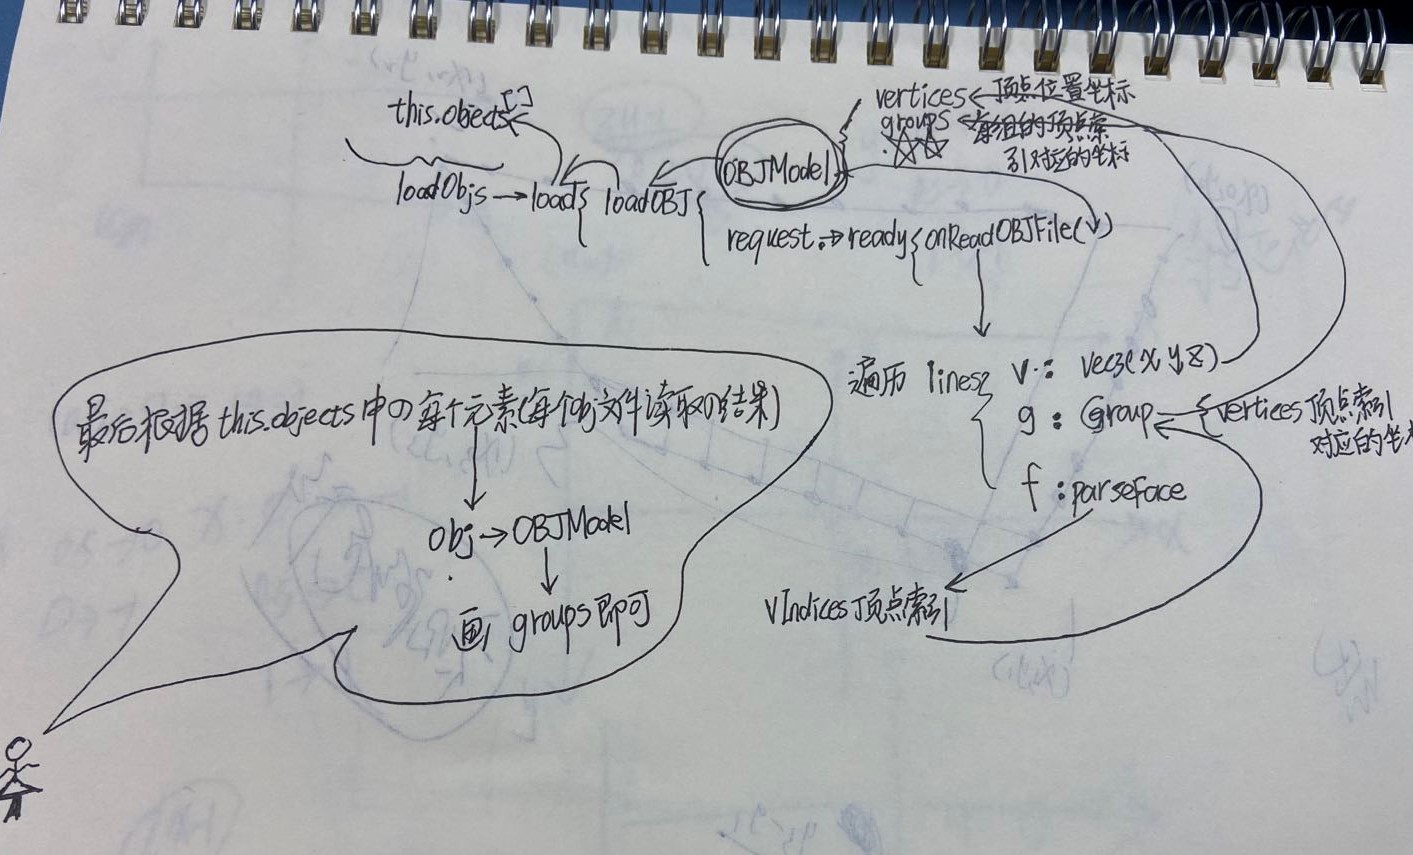 this.objects[]
loadObjs → load{ loadOBJ{
OBJModel
vertices ← 顶点位置坐标
groups ← 每组的顶点索
引对应的坐标
request. → ready{ onReadOBJFile( )
遍历 lines { v : vec3(x,y,z)
g : Group { vertices顶点索引
对应的坐标
f : parseFace
vIndices顶点索引
最后根据this.objects中の每个元素(每个obj文件读取の结果)
obj → OBJModel
画 groups即可